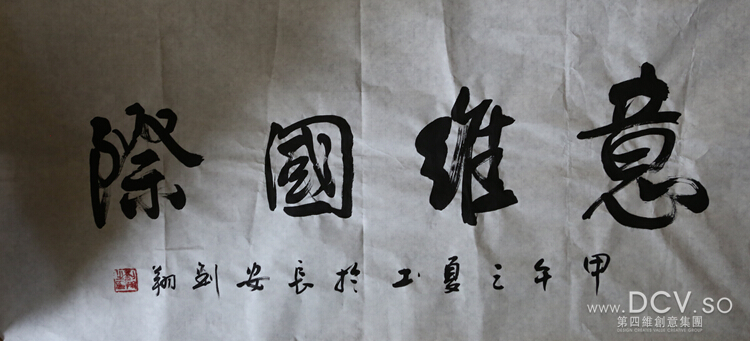 意維國際
甲午之夏书於長安剑翔
www.DCV.so
第四維創意集團